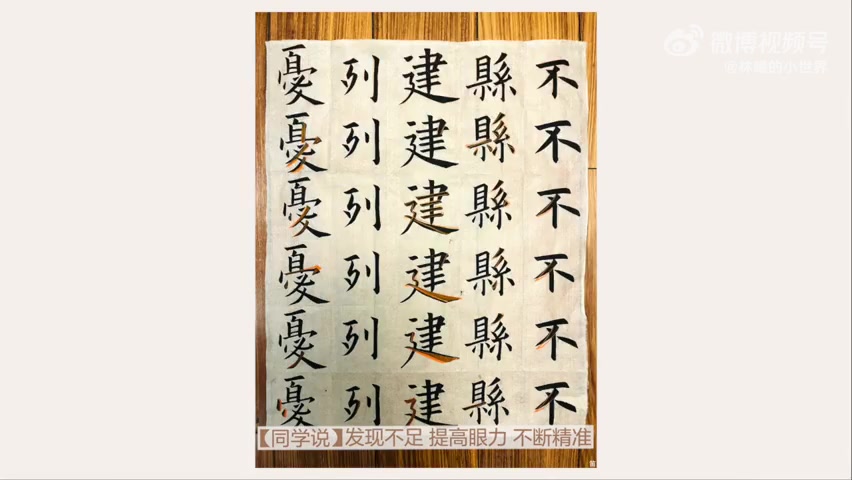 微博视频号
@林曦的小世界
憂 列 建 縣 不
憂 列 建 縣 不
憂 列 建 縣 不
憂 列 建 縣 不
憂 列 建 縣 不
憂 列 建 縣 不
【同学说】发现不足 提高眼力 不断精准